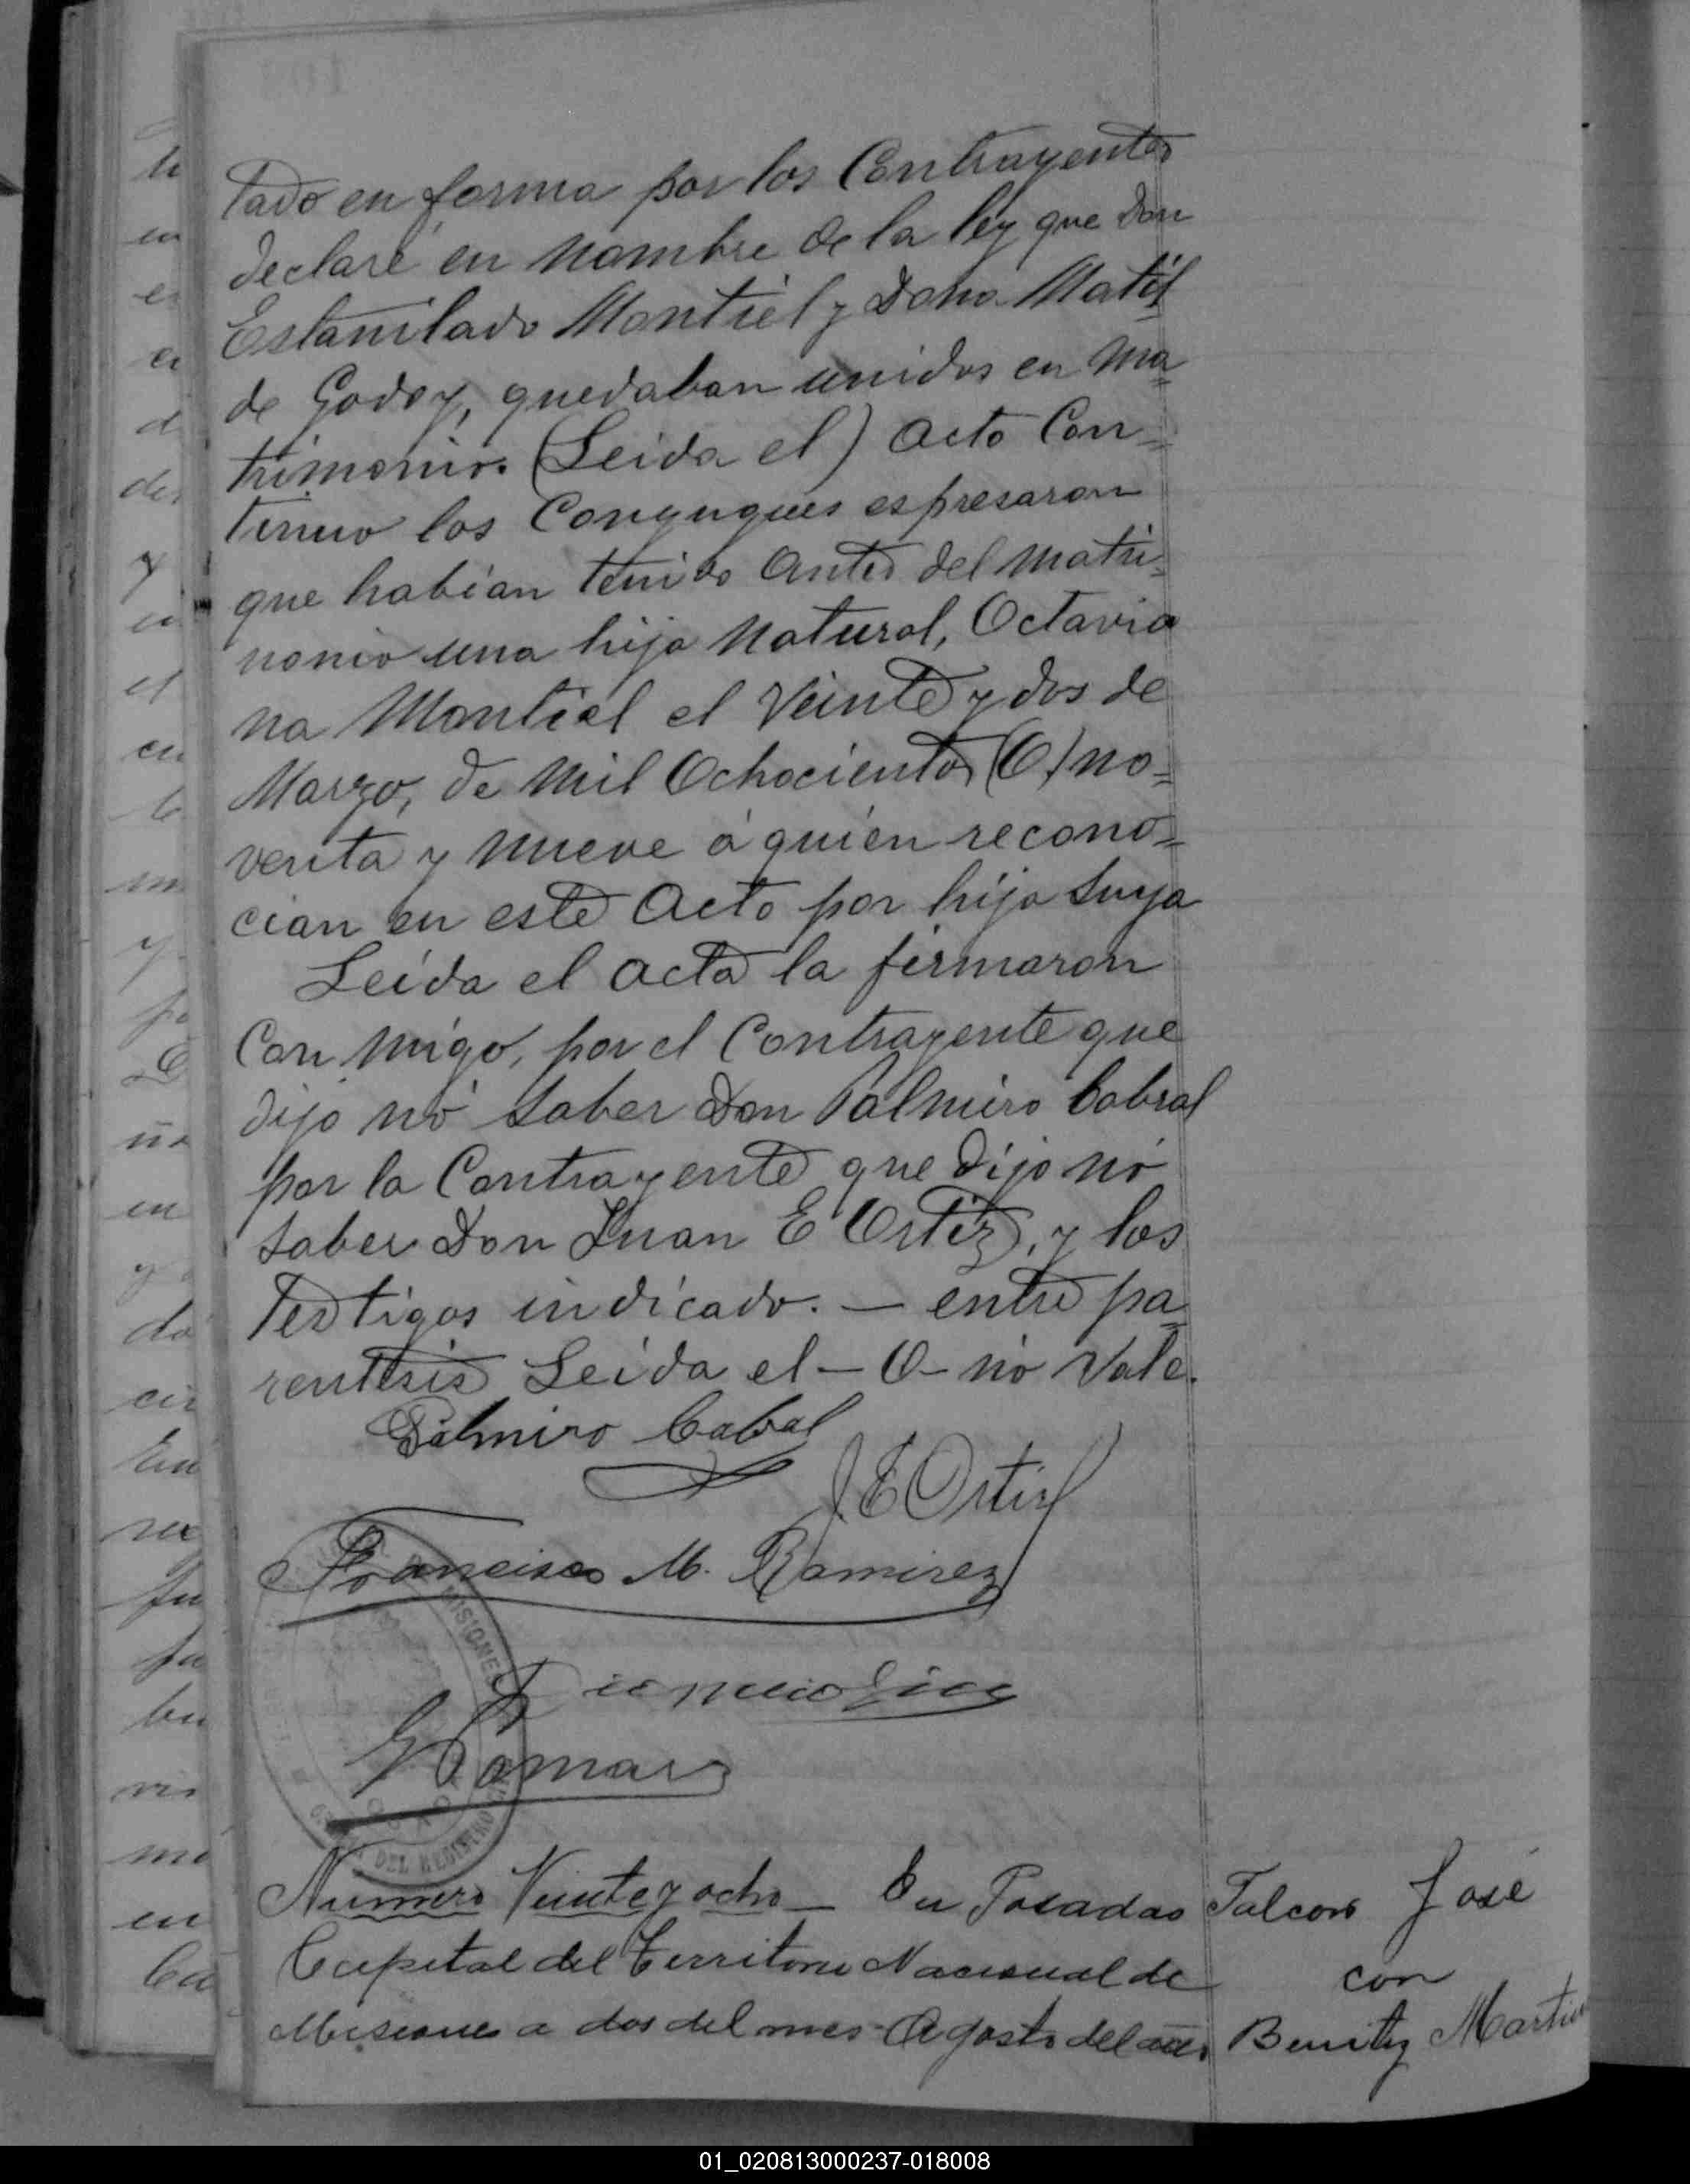 tado en forma por los Contrayentes
declaré en nombre de la ley que Don
Estanilado Montiel y Doña Matil
de Godoy, quedaban unidos en ma=
trimonio. (Leida el) acto Con=
tinuo los Conyugues espresaron
que habian tenido antes del matri=
nonio una hija natural, Octavia
na Montiel el Veinte y dos de
Marzo, de mil Ochocientos (O) no=
venta y nueve á quien recono=
cian en este acto por hija suya
Leida el acta la firmaron
Con migo, por el Contrayente que
dijo nó saber Don Palmiro Cabral
por la Contrayente que dijo nó
saber Don Juan E Ortiz, y los
Testigos indicado. — entre pa=
rentesis Leida el — O — nó Vale.
Palmiro Cabral
J. E Ortiz
Francisco M. Ramirez
MISIONES
DEL REGISTRO
Numero Veinte y ocho — En Posadas
Capital del Territorio Nacional de
Misiones a dos del mes Agosto del año
Falcon José
con
Benitez
01_020813000237-018008